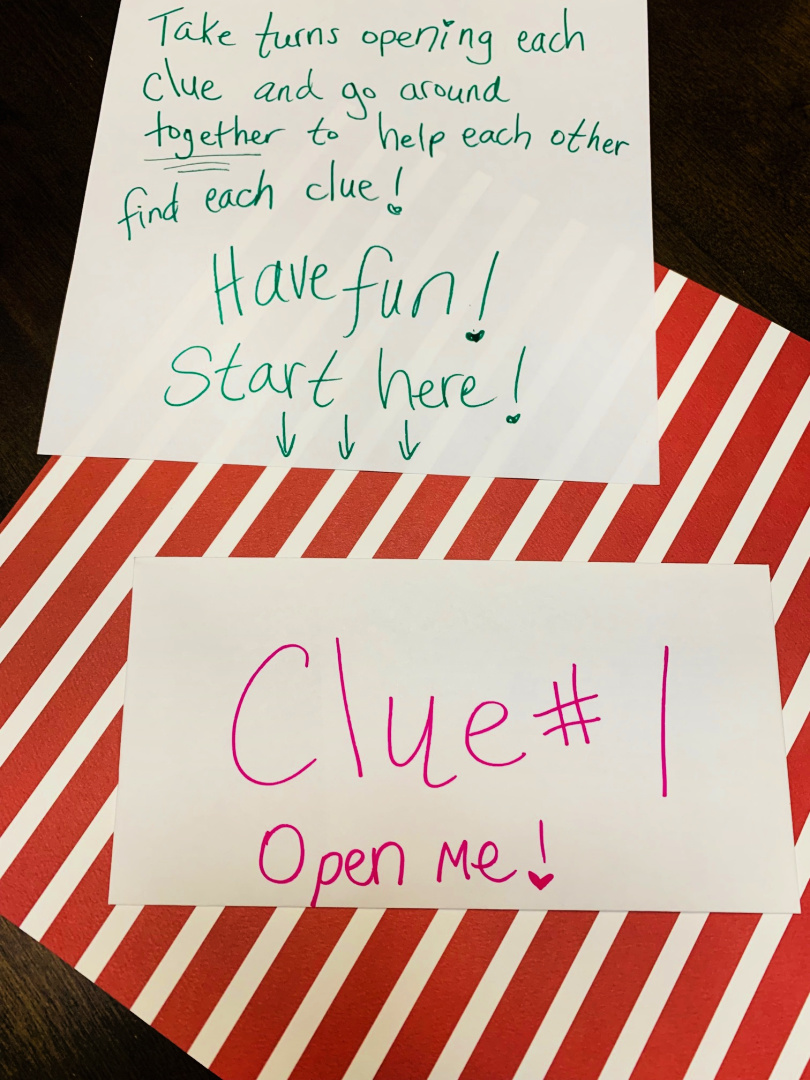 Take turns opening each
clue and go around
together to help each other
find each clue!
Have fun!
Start here!
↓ ↓ ↓
Clue # 1
Open Me!